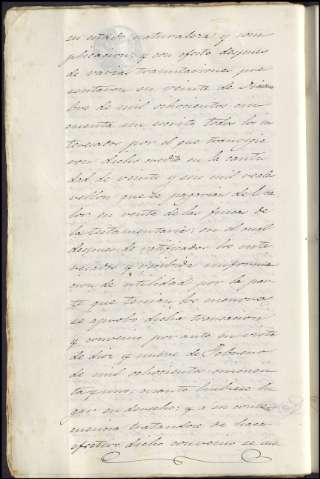 en estado naturaleza y com
plicacion; y con efecto despues
de varias tramitaciones pre
sentaron en veinte de Diciem
bre de mil ochocientos cin
cuenta un escrito todos los in
teresados por el que transigie
ron dicho credito en la canti
dad de veinte y un mil reales
vellon que se pagarian del va
lor en venta de las fincas de
la testamentaria; en el cual
despues de ratificados los inte
resados y recibida informa
cion de utilidad por la par
te que tenian los menores
se aprobó dicha transacion
y convenio por auto en vista
de diez y nueve de Febrero
de mil ochocientos cincuen
ta y uno, cuanto hubiese lu
gar en derecho; y a su conse
cuencia tratandose de hacer
efectivo dicho convenio se